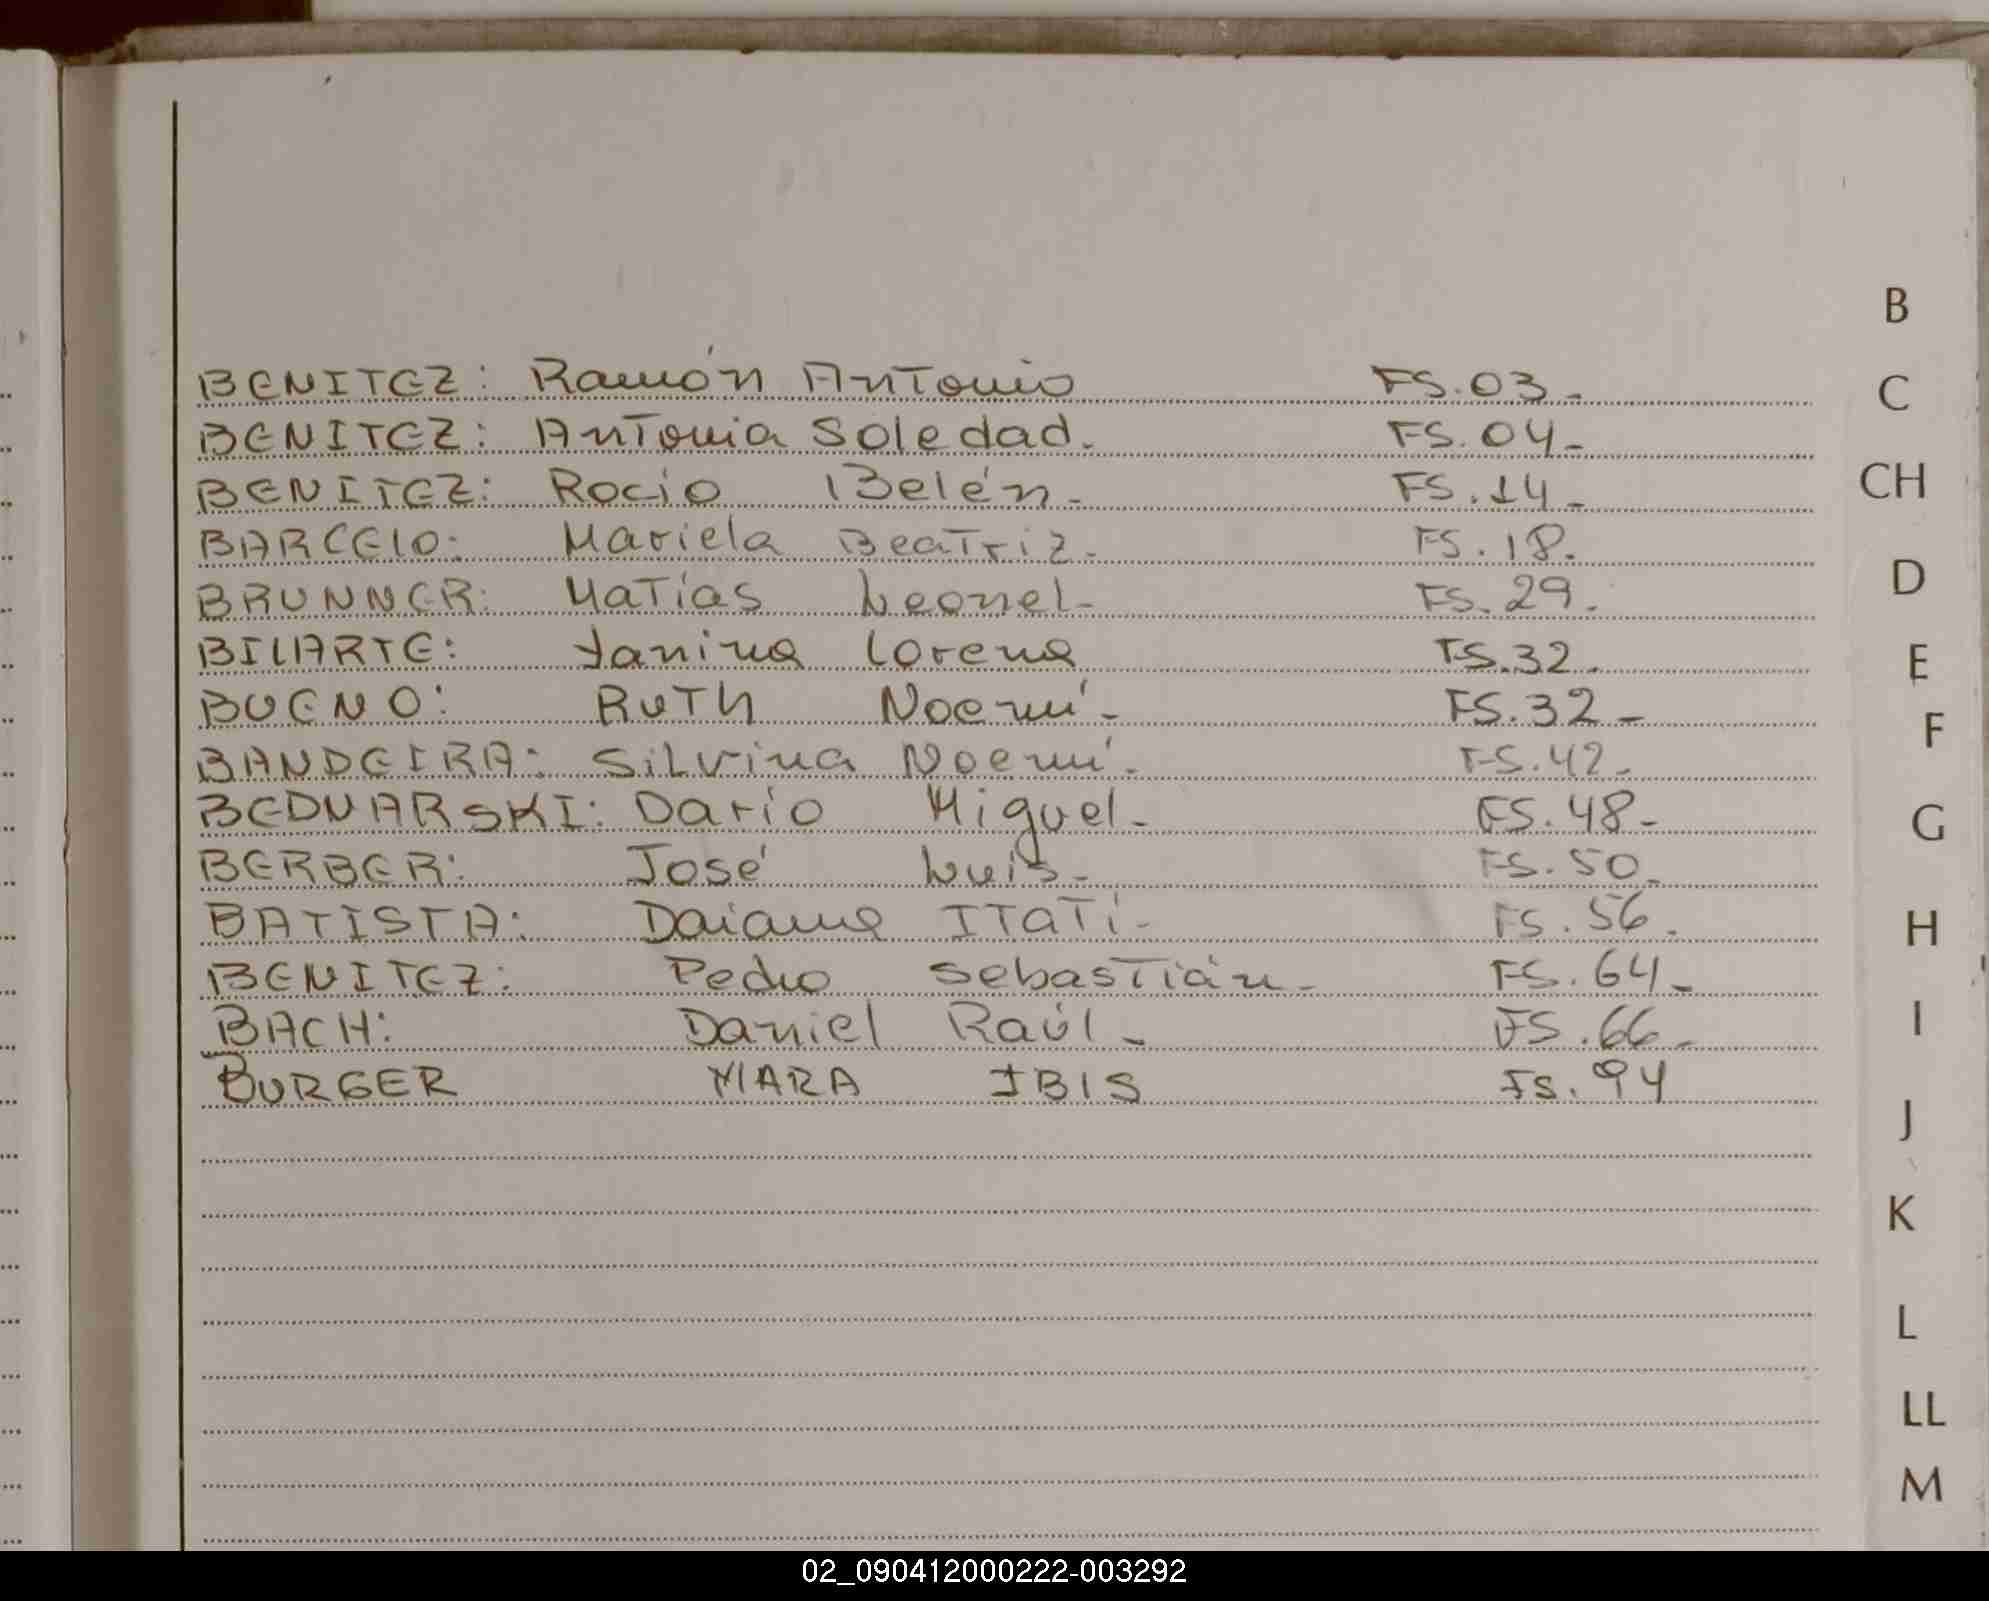 BENITEZ: Ramón Antonio FS. 03-
BENITEZ: Antonia Soledad. FS. 04-
BENITEZ: Rocio Belén- FS. 14-
BARCELO: Mariela Beatriz- FS. 18.
BRUNNER: Matías Leonel- FS. 29.
BILARTE: Yanina Lorena FS. 32.
BUENO: Ruth Noemí- FS. 32-
BANDEIRA: Silvina Noemí- FS. 42-
BEDNARSKI: Dario Miguel- FS. 48-
BERBER: José Luis- FS. 50-
BATISTA: Daiana Itatí- FS. 56.
BENITEZ: Pedro Sebastián- FS. 64-
BACH: Daniel Raúl- FS. 66-
BURGER MARA IBIS FS. 94
B
C
CH
D
E
F
G
H
I
J
K
L
LL
M
02_090412000222-003292